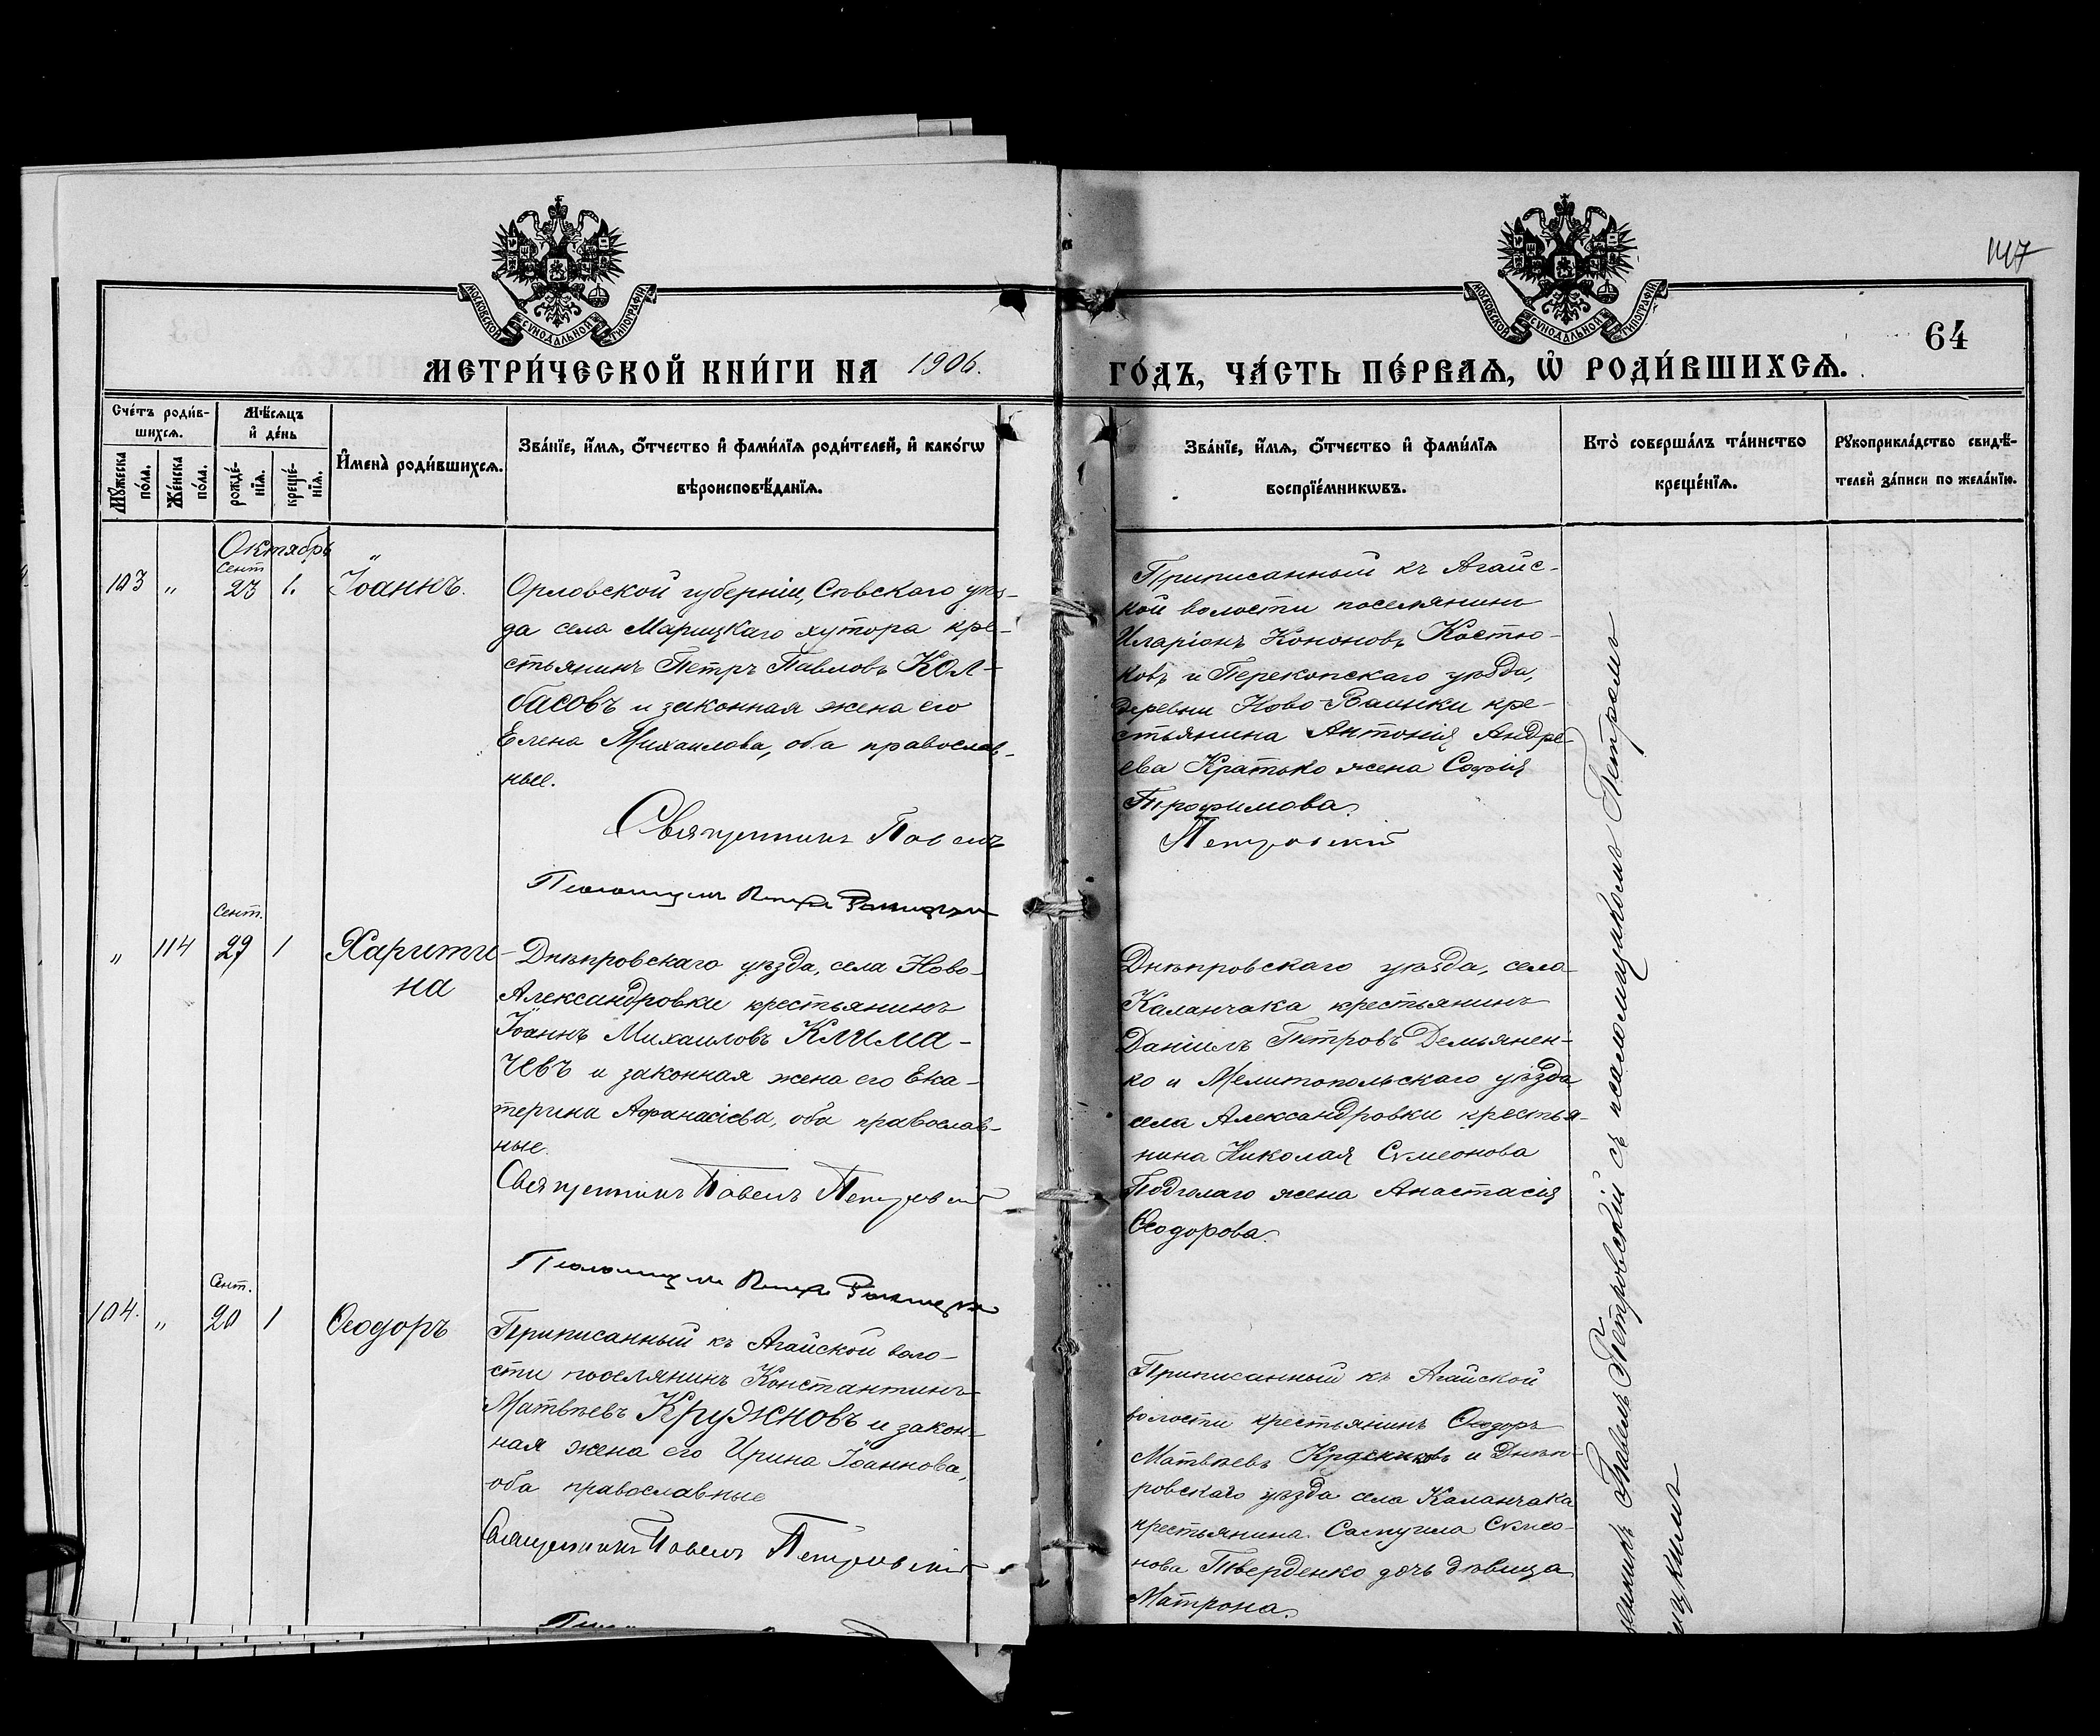 147
64
МОСКОВСКОЙ СѴНОДАЛЬНОЙ ТИПОГРАФІИ
МОСКОВСКОЙ СѴНОДАЛЬНОЙ ТИПОГРАФІИ
МЕТРИ́ЧЕСКОЙ КНИ́ГИ НА 1906. ГО́ДЪ, ЧА́СТЬ ПЕ́РВАѦ, Ѡ҆ РОДИ́ВШИХСѦ.
Сче́тъ роди́в-
шихсѧ.
Мꙋ́жеска по́ла.
Же́нска по́ла.
Мѣ́сѧцъ
и҆ де́нь
рожде́-
нїѧ.
креще́-
нїѧ.
И҆мена̀ роди́вшихсѧ.
Зва́нїе, и҆́мѧ, ѻ҆́тчество и҆ фами́лїѧ роди́телей, и҆ како́гѡ
вѣроисповѣ́данїѧ.
Зва́нїе, и҆́мѧ, ѻ҆́тчество и҆ фами́лїѧ
воспрїе́мникѡвъ.
Кто̀ соверша́лъ та́инство
креще́нїѧ.
Рꙋкоприкла́дство свидѣ́-
телей за́писи по жела́нїю.
Октябрь
Сент
103 " 23 1. Іоаннъ.
Орловской губерніи, Сѣвскаго уѣз-
да села Марицкаго хутора кре-
стьянинъ Петръ Павловъ Кол-
басовъ и законная жена его
Елена Михаилова, оба православ-
ные.
Священникъ Павелъ
Приписанный къ Агайс-
кой волости поселянинъ
Иларіонъ Кононовъ Костю-
ковъ и Перекопскаго уѣзда,
деревни Ново-
кре-
стьянина Антонія Андре-
ева Кратько жена Софія
Трофимова.
Петровскій
Псаломщикъ Петръ
Сент.
" 114 29 1 Харити-
на
Днѣпровскаго уѣзда, села Ново-
Александровки крестьянинъ
Іоаннъ Михаиловъ Клима-
чевъ и законная жена его Ека-
терина Афанасіева, оба православ-
ные.
Священникъ Павелъ Петровскій
Псаломщикъ Петръ
Днѣпровскаго уѣзда, села
Каланчака крестьянинъ
Даніилъ Петровъ Демьянен-
ко и Мелитопольскаго уѣзда
села Александровки крестья-
нина Николая Сѵмеонова
Подголаго жена Анастасія
Ѳеодорова.
Сент.
104. " 20 1 Ѳеодоръ
Приписанный къ Агайской воло-
сти поселянинъ Константинъ
Матвѣевъ Кружновъ и закон-
ная жена его Ирина Іоаннова,
оба православные
Священникъ Павелъ Петровскій
Приписанный къ Агайской
волости крестьянинъ Ѳеодоръ
Матвѣевъ
и Днѣп-
ровскаго уѣзда села Каланчака
крестьянина
Сѵмео-
нова Тверденко дочь дѣвица
Матрона.
Павелъ Петровскій съ псаломщикомъ Петромъ